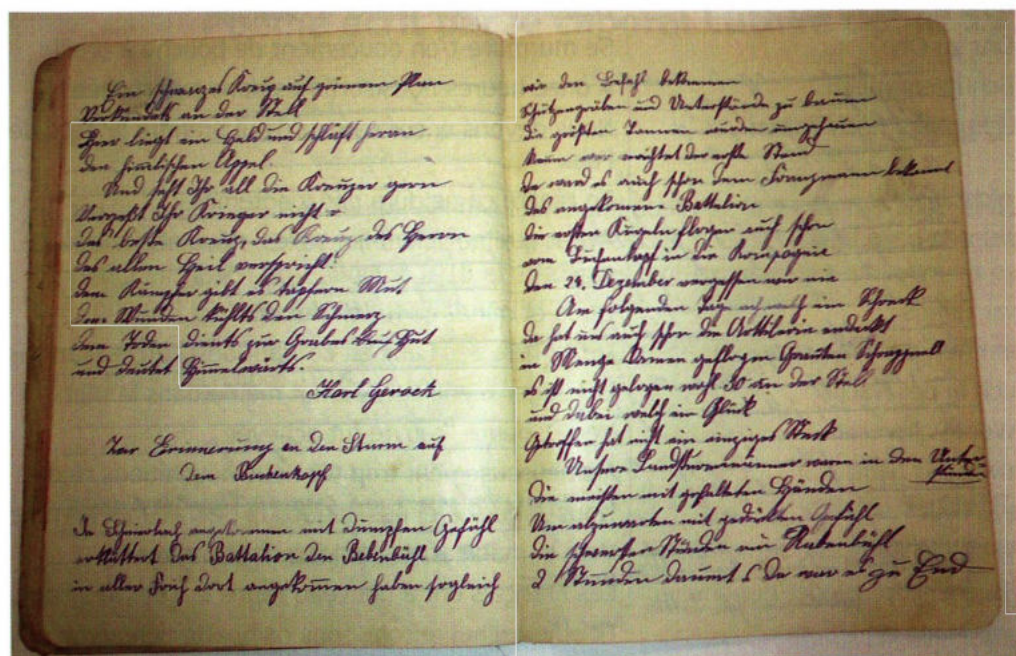 Ein schwarzes Kreuz auf grünem Plan
Verkündets an der Stell
Hier liegt ein Held und schläft heran
den himlischen Appel.
Und seht Ihr all die Kreuzer gern
Vergeßt Ihr Krieger nicht
das beste Kreuz, das Kreuz des Herrn
das allen Heil verspricht!
dem Kämpfer gibt es tapfern Mut
den Wunden kühlts den Schmerz
dem Toden dients zur Grabes Hut
und deutet Himmelwärts.
Karl Gerock
Zur Erinnerung an den Sturm auf
dem Buchenkopf
In angekommen mit dumpfen Gefühl
erklettert das Battalion den Rebenbühl
in aller Früh dort angekommen haben sogleich
wir den Befehl bekommen
Schützengräben und Unterstände zu bauen
die größten Tannen wurden umgehauen
kaum war errichtet der erste Stand
da ward es auch schon dem Franzmann bekannt
das angekomene Battalion
die ersten Kugeln flogen auch schon
vom Buchenkopf in die Kompagnie
den 24. Dezember vergessen wir nie
Am folgenden Tag im Schreck
da hat uns auch schon die Artillerie endeckt
in Menge kamen geflogen Granaten Schrappnell
es ist nicht gelogen wohl 30 an der Stell
und dabei welch ein Glück
Getroffen hat nicht ein einziges Stück
Unsere Landsturmmänner waren in den Unter-
stände
die meisten mit gefalteten Händen
Um abzuwarten mit gedrückten Gefühl
die schwersten Stunden am Rabenbühl
2 Stunden dauert s da war es zu End